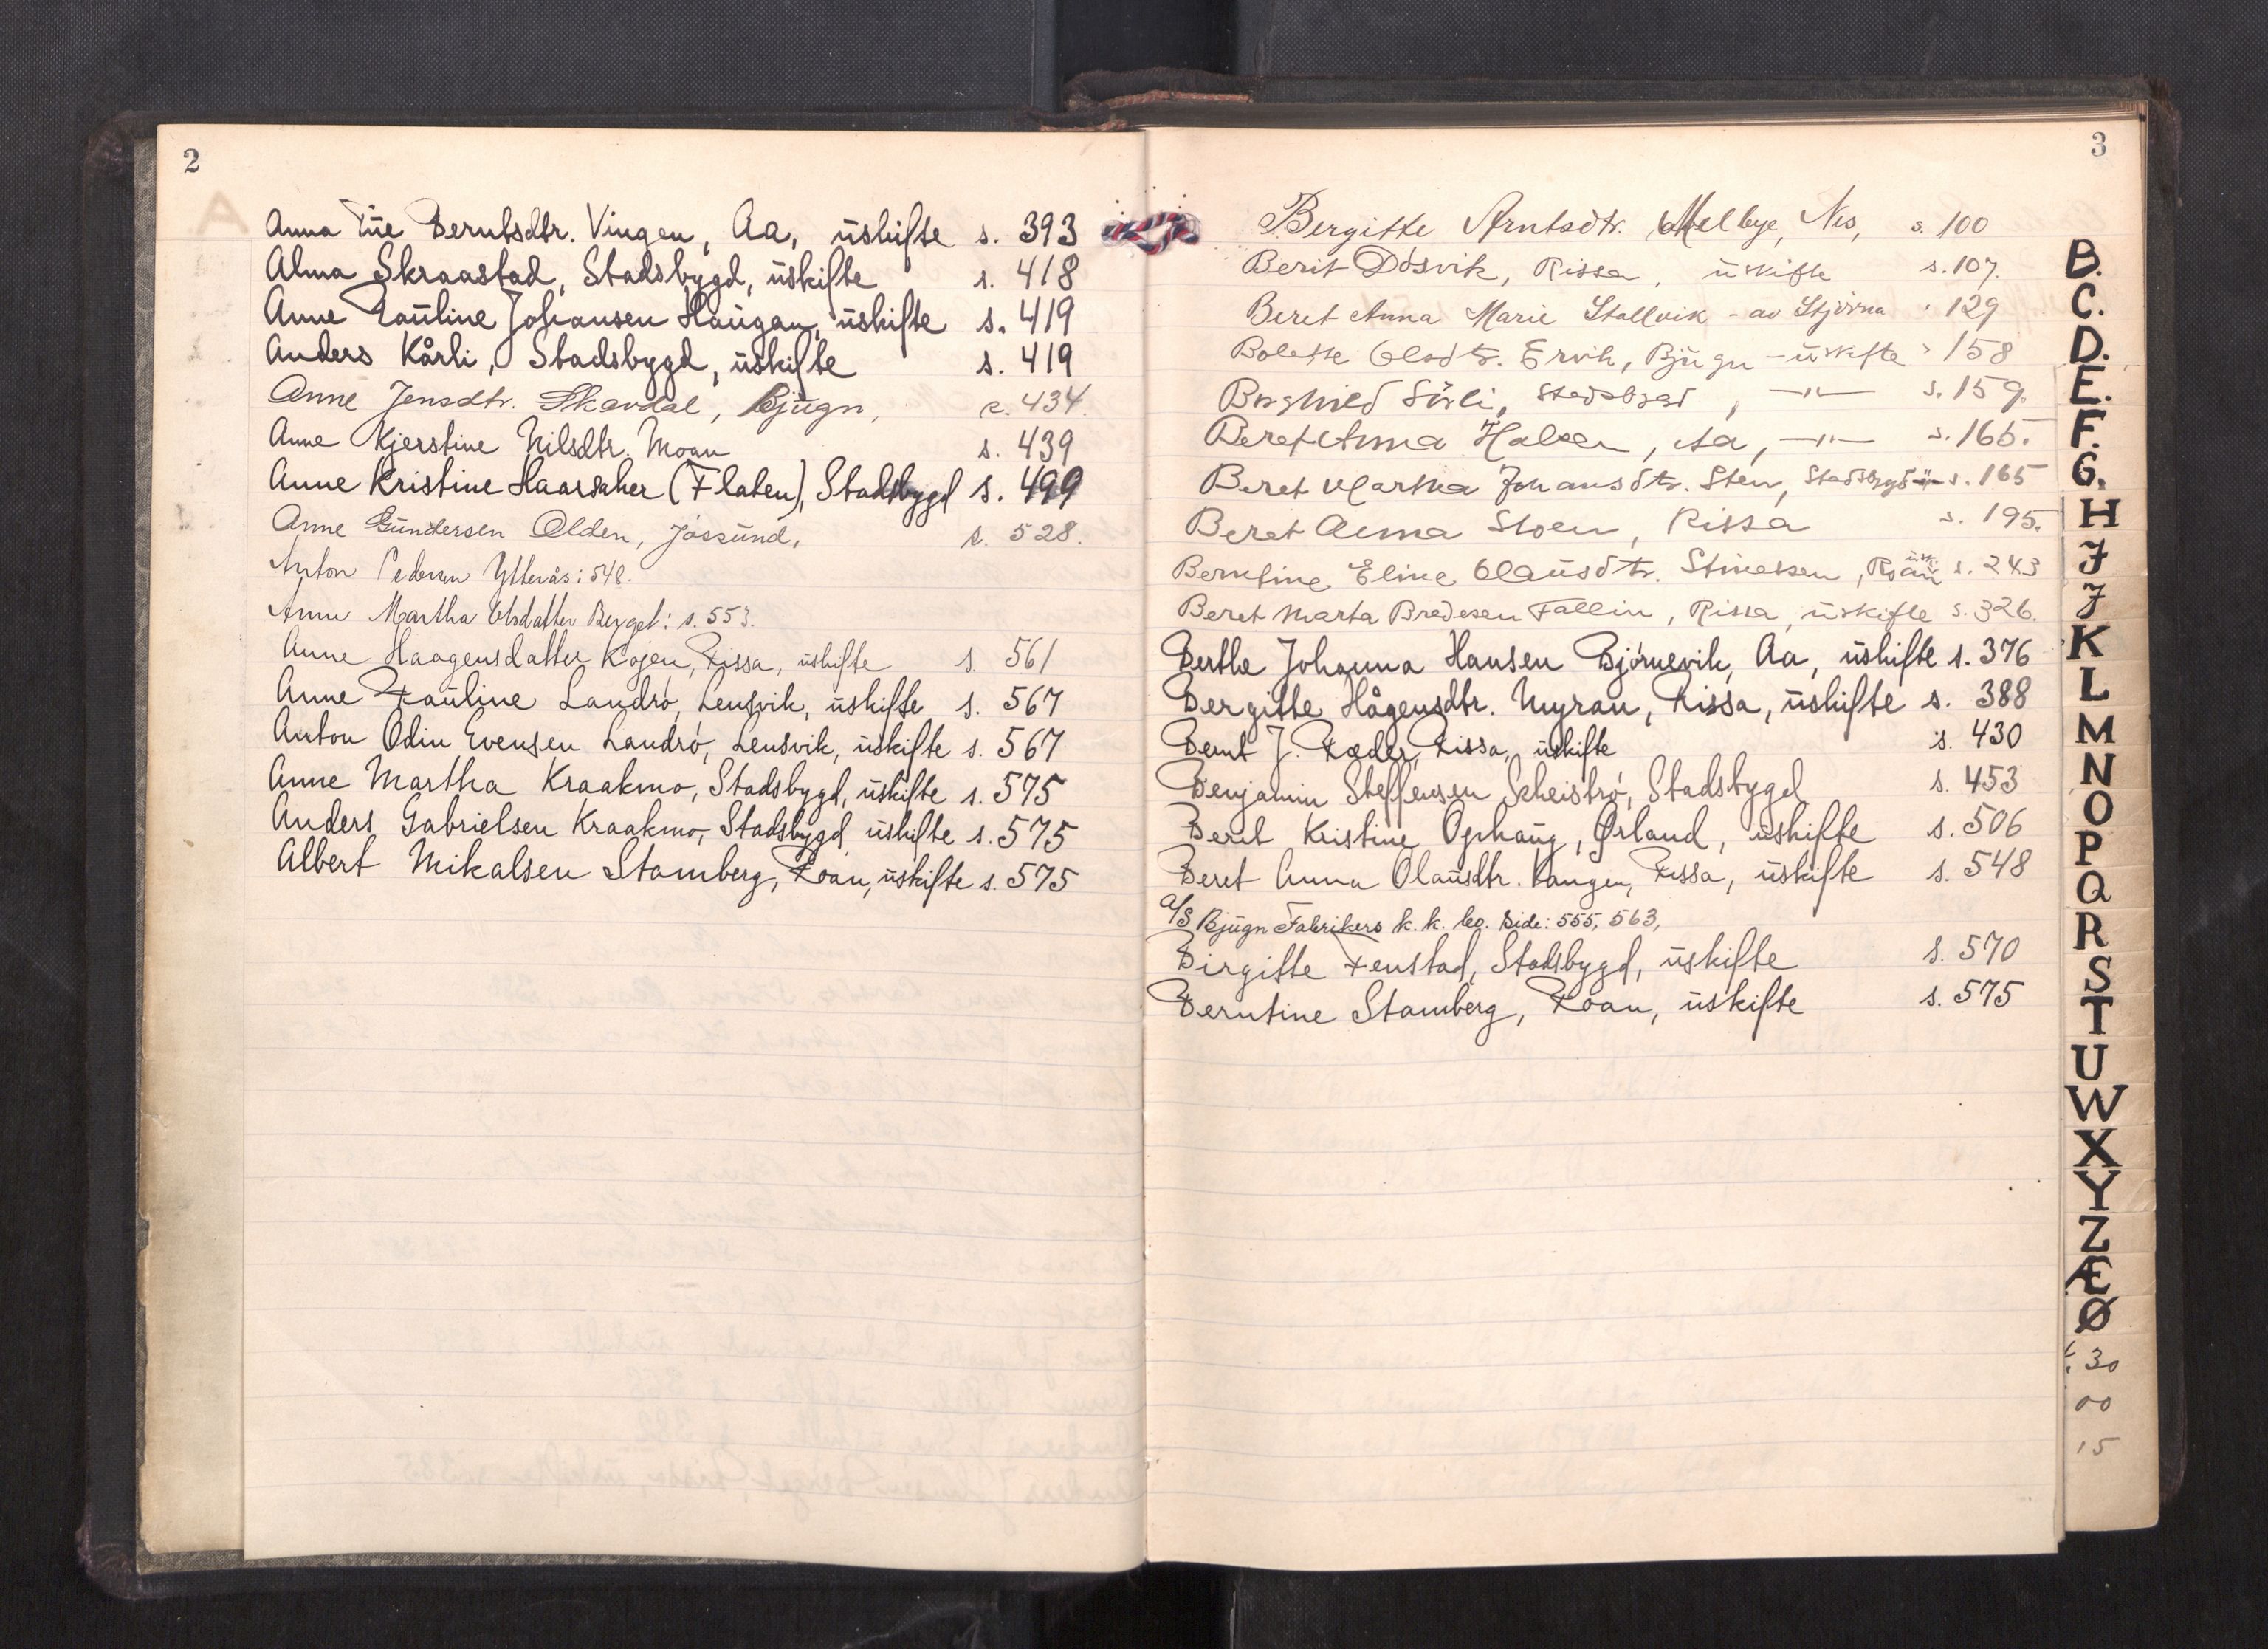 2
Anna Tine Berntsdtr. Vingen, Aa, uskifte s. 393
Alma Skraastad, Stadsbygd, uskifte s. 418
Anne Pauline Johansen Haugan, uskifte s. 419
Anders Kårli, Stadsbygd, uskifte s. 419
Anne Jensdtr. Skavdal, Bjugn, s. 434.
Anne Kjerstine Nilsdtr. Moan s. 439
Anne Kristine Haarsaker (Flaten), Stadsbygd s. 499
Anne Gundersen Olden, Jøssund, s. 528.
Anton Pedersen Ytterås: 548.
Anne Martha Olsdatter Berget: s. 553.
Anne Haagensdatter Kojen, Rissa, uskifte s. 561
Anne Pauline Landrø, Lensvik, uskifte s. 567
Anton Odin Evensen Landrø, Lensvik, uskifte s. 567
Anne Martha Kraakmo, Stadsbygd, uskifte s. 575
Anders Gabrielsen Kraakmo, Stadsbygd uskifte s. 575
Albert Mikalsen Stamberg, Roan, uskifte s. 575
3
Bergitte Arntsdtr. Melbye, Nes, s. 100
Berit Døsvik, Rissa, uskifte s. 107.
Beret Anna Marie Stallvik - av Stjørna " 129
Bolette Olsdtr. Ervik, Bjugn - uskifte " 158
Borghild Sørli, Stadsbygd, —"— s. 159.
Beret Anna Halsen, Aa, —"— s. 165.
Beret Martha Johansdtr. Sten, Stadsbygd -"- s. 165
Beret Anna Stoen, Rissa s. 195.
Berntine Eline Olausdtr. Stinessen, Roan usk. s. 243
Beret Marta Bredesen Fallin, Rissa, uskifte s. 326.
Berthe Johanna Hansen Bjørnevik, Aa, uskifte s. 376
Bergitte Hågensdtr. Myran, Rissa, uskifte s. 388
Bernt J. Ræder, Rissa, uskifte s. 430
Benjamin Steffensen Scheistrø, Stadsbygd s. 453
Beret Kristine Ophaug, Ørland, uskifte s. 506
Beret Anna Olausdtr. Vangen, Rissa, uskifte s. 548
a/s Bjugn Fabrikers k. k. bo. Side: 555, 563,
Birgitte Fenstad, Stadsbygd, uskifte s. 570
Berntine Stamberg, Roan, uskifte s. 575
B.
C.
D.
E.
F.
G.
H
I
J
K
L
M
N
O
P
Q
R
S
T
U
W
X
Y
Z
Æ
Ø
30
00
15